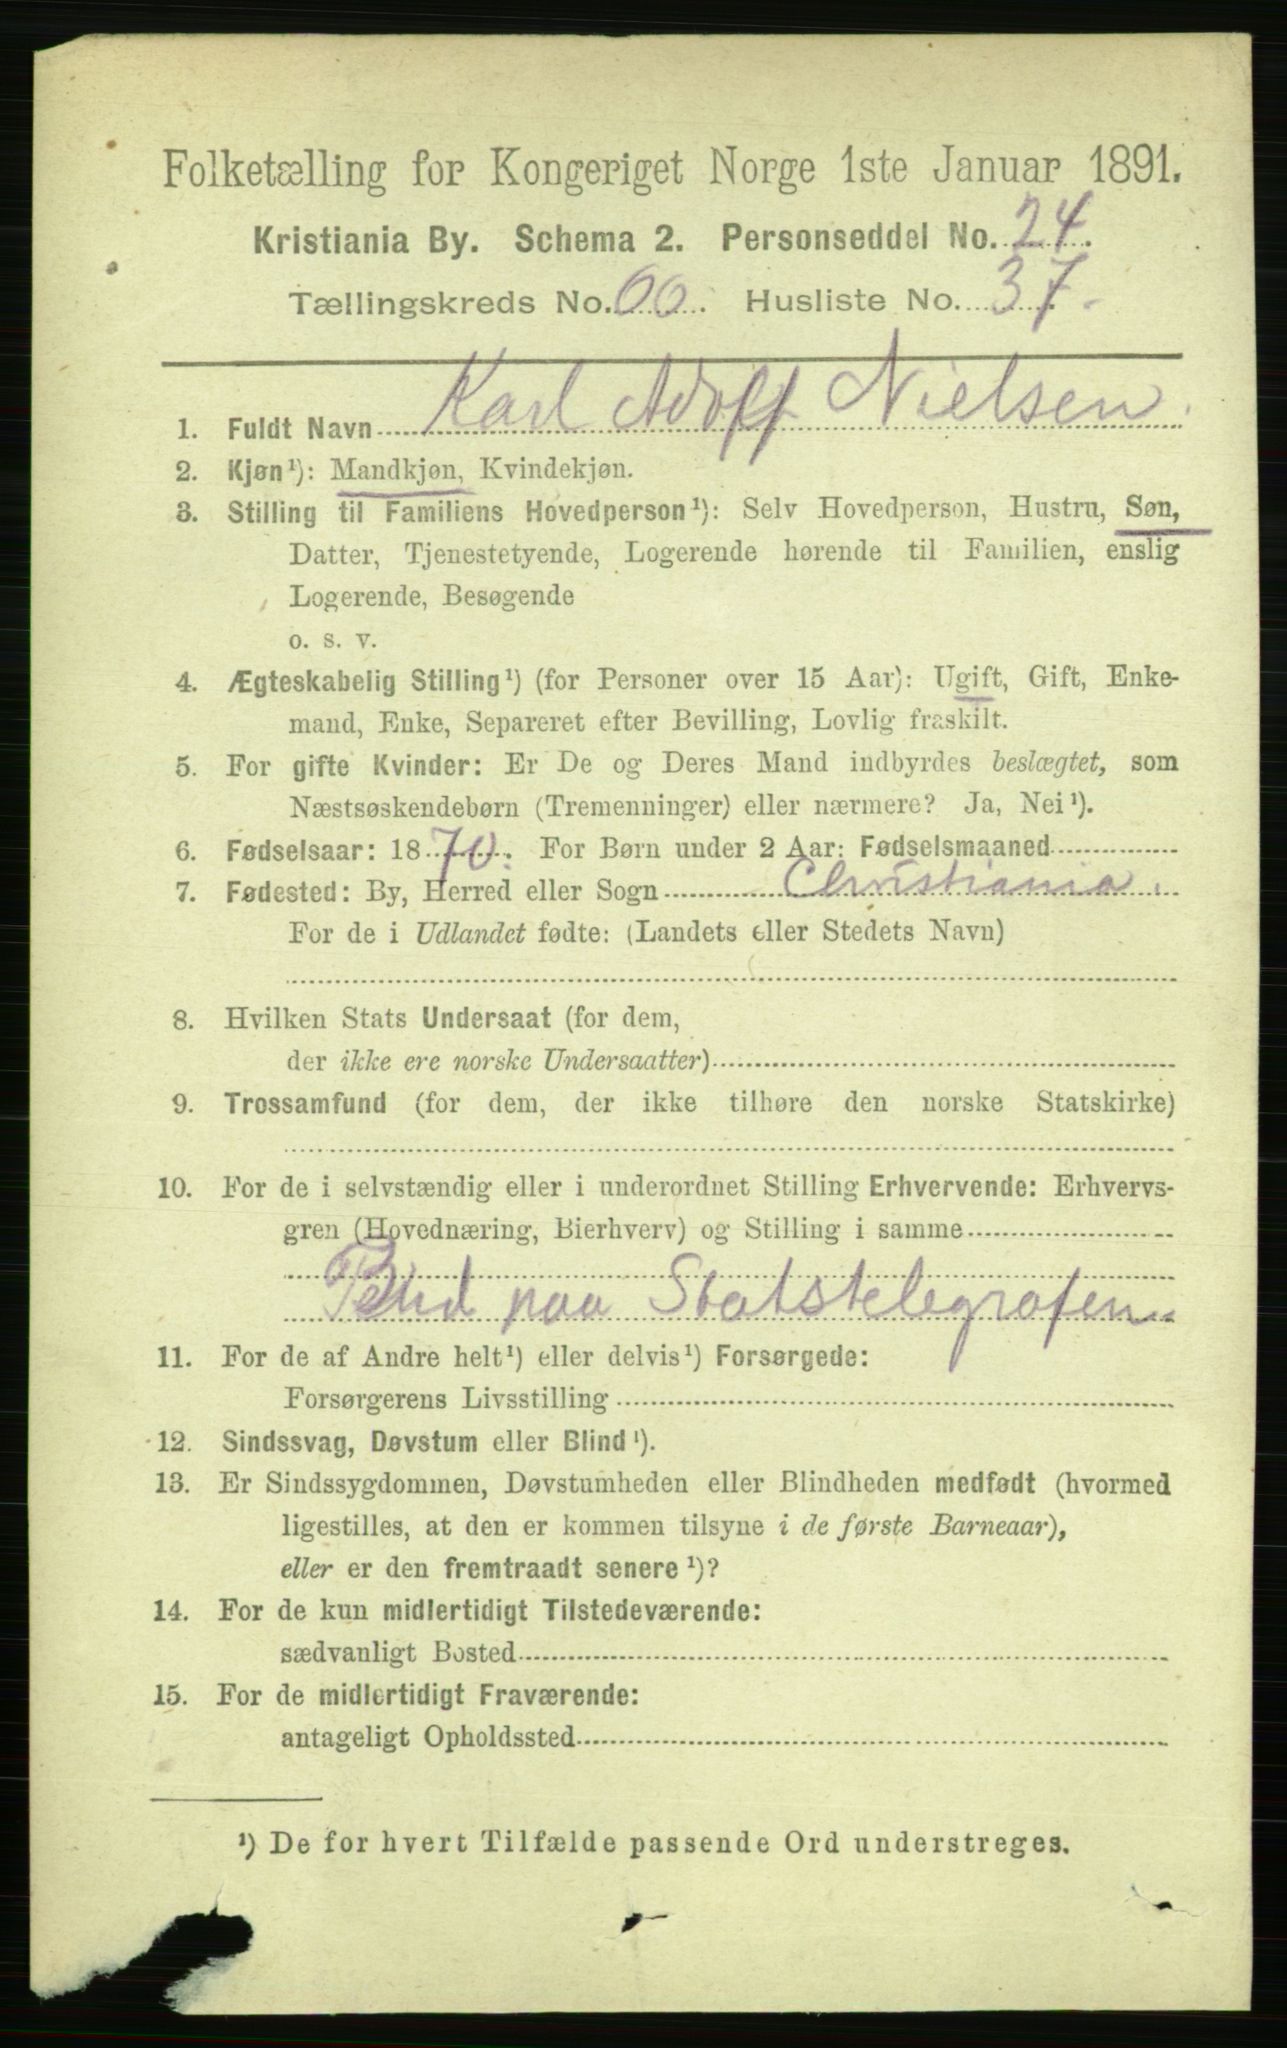 Folketælling for Kongeriget Norge 1ste Januar 1891.
Kristiania By. Schema 2. Personseddel No. 24.
Tællingskreds No. 60. Husliste No. 37.
1. Fuldt Navn Karl Adolf Nielsen.
2. Kjøn¹): Mandkjøn, Kvindekjøn.
3. Stilling til Familiens Hovedperson¹): Selv Hovedperson, Hustru, Søn,
Datter, Tjenestetyende, Logerende hørende til Familien, enslig
Logerende, Besøgende
o. s. v.
4. Ægteskabelig Stilling¹) (for Personer over 15 Aar): Ugift, Gift, Enke-
mand, Enke, Separeret efter Bevilling, Lovlig fraskilt.
5. For gifte Kvinder: Er De og Deres Mand indbyrdes beslægtet, som
Næstsøskendebørn (Tremenninger) eller nærmere? Ja, Nei¹).
6. Fødselsaar: 1870. For Børn under 2 Aar: Fødselsmaaned
7. Fødested: By, Herred eller Sogn Christiania.
For de i Udlandet fødte: (Landets eller Stedets Navn)
8. Hvilken Stats Undersaat (for dem,
der ikke ere norske Undersaatter)
9. Trossamfund (for dem, der ikke tilhøre den norske Statskirke)
10. For de i selvstændig eller i underordnet Stilling Erhvervende: Erhvervs-
gren (Hovednæring, Bierhverv) og Stilling i samme
paa Statstelegrafen.
11. For de af Andre helt¹) eller delvis¹) Forsørgede:
Forsørgerens Livsstilling
12. Sindssvag, Døvstum eller Blind¹).
13. Er Sindssygdommen, Døvstumheden eller Blindheden medfødt (hvormed
ligestilles, at den er kommen tilsyne i de første Barneaar),
eller er den fremtraadt senere¹)?
14. For de kun midlertidigt Tilstedeværende:
sædvanligt Bosted
15. For de midlertidigt Fraværende:
antageligt Opholdssted
¹) De for hvert Tilfælde passende Ord understreges.